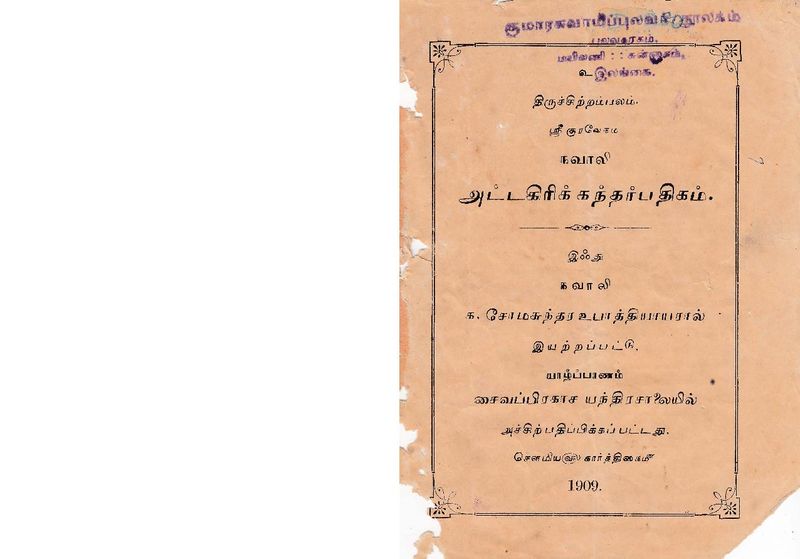 குமாரசுவாமிப்புலவர் நூலகம்
மயிலணி :: சுன்னாகம்,
இலங்கை.
உ
திருச்சிற்றம்பலம்.
ஸ்ரீ குரவேநம
நவாலி
அட்டகிரிக்கந்தர்பதிகம்.
இஃது
நவாலி
க. சோமசுந்தர உபாத்தியாயரால்
இயற்றப்பட்டு,
யாழ்ப்பாணம்
சைவப்பிரகாச யந்திரசாலையில்
அச்சிற்பதிப்பிக்கப்பட்டது.
சௌமியவ௵ கார்த்திகைமீ
1909.